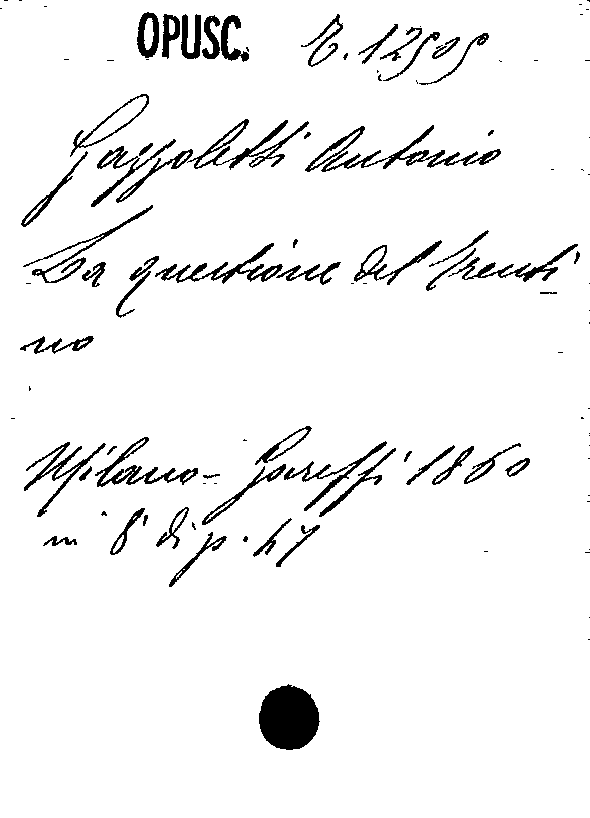 OPUSC. E. 12505
Gazzoletti Antonio
La questione del Trenti
no
Milano - Gareffi 1860
in 8° di p. 47